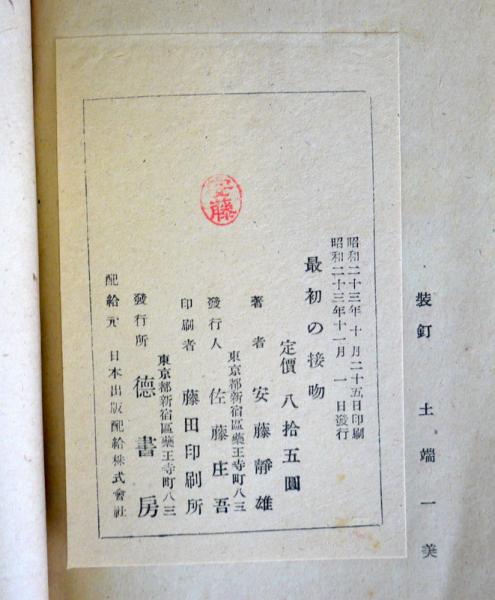 装釘　土端一美
昭和二十三年十月二十五日印刷
昭和二十三年十一月一日發行
最初の接吻
定價八拾五圓
著者　安藤靜雄
東京都新宿區藥王寺町八三
發行人　佐藤庄吾
印刷者　藤田印刷所
東京都新宿區藥王寺町八三
發行所　德書房
配給元　日本出版配給株式會社
安藤